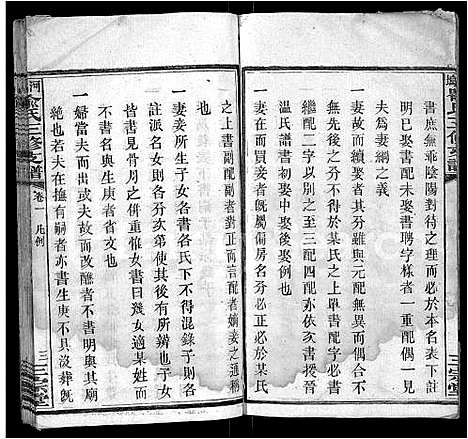 書庶無乖陰陽對待之理而必於本名下表註
明巳娶書配未娶書聘字樣者一重配偶一見
夫爲妻綱之義
一妻故而續娶者其分雖與元配無異而偶合不
無先後之分不得於某氏之上單書配字必書
繼配以及至三配四配亦然依亥書授
溫氏譜書初娶中娶後娶例也
一妻在而買妾者旣屬偏房名分必正必於某氏
之上書副配副者對正而言配者嫡妾之通稱
也
一妻妾所生子女必書各氏下不得混錄子女
註派名女則各分亥弟使其後有所辨也子女
皆書見骨月之一體惟女書曰幾女適某姓而
不書名與生庚者省文也
一婦當夫而出或夫故而改醮者不書明與其廟
絕也若夫在撫有嗣者亦書生庚不具沒葬旣
河
氏三修支譜
卷一
凡例
三
三宗堂